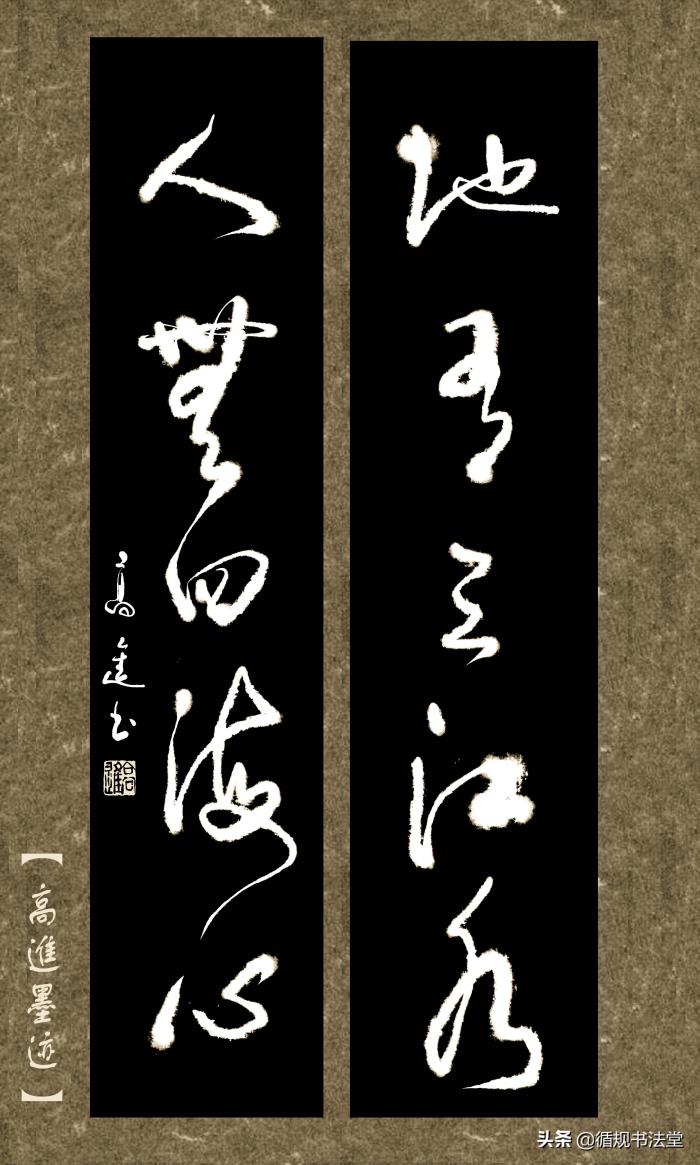 地有三江水
人無四海心
高進书
高進
【高進墨迹】
头条 @循规书法堂